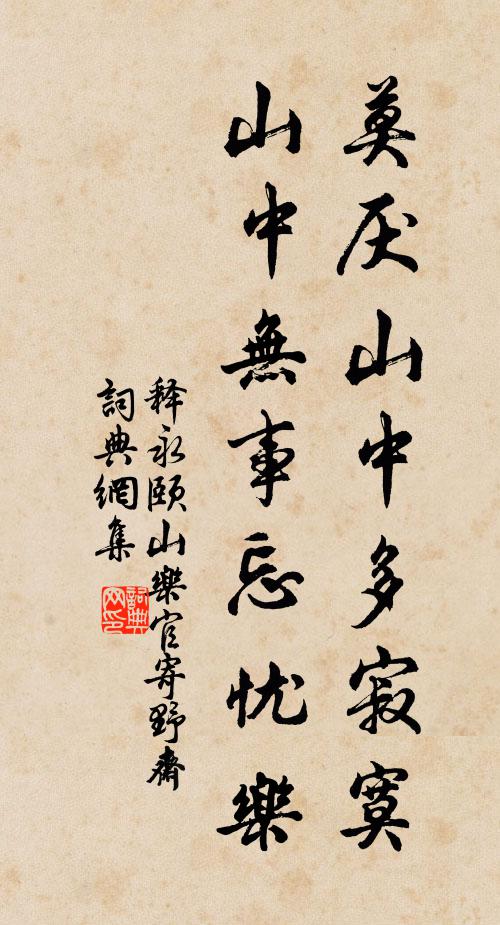 莫厌山中多寂寞
山中無事忘忧樂
释永颐山樂官寄野齋
詞典網集
詞典网印